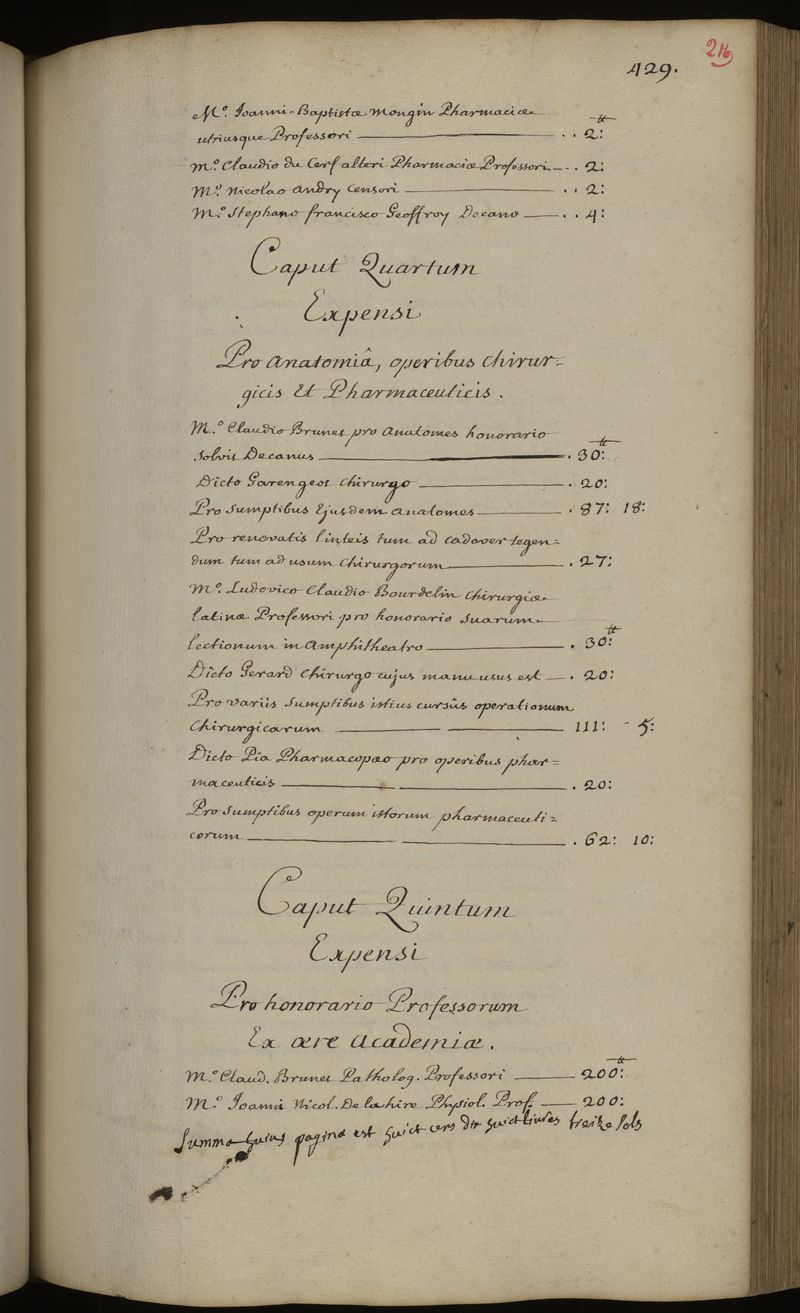 216
429.
M.o Joanni-Baptistæ Mongin Pharmaciæ
utriusque Professori — . . 2:tt
M.o Claudio du Cerf alteri Pharmaciæ Professori — . . 2:
M.o Nicolao Andry Censori — . . 2:
M.o Stephano francisco Geoffroy Decano — . . 4:
Caput Quartum
Expensi
Pro Anatomiâ, operibus Chirur=
gicis Et Pharmaceuticis.
M.o Claudio Brunet pro Anatomes honorario
solvit Decanus — . 30:tt
Dicto Garengeot Chirurgo — . 20:
Pro Sumptibus Ejusdem Anatomes — . 87: 18:
Pro renovatis linteis tum ad cadaver tegen=
dum tum ad usum Chirurgorum — . 27:
M.o Ludovico Claudio Bourdelin Chirurgiæ
latinæ Professori pro honorario Suarum
lectionum in Amphitheatro — . 30:tt
Dicto Gerard Chirurgo cujus manu usus est — . 20:
Pro variis Sumptibus istius cursûs operationum
Chirurgicarum — 111: 5:
Dicto Pia Pharmacopæo pro operibus phar=
maceuticis — . 20:
Pro Sumptibus operum istorum pharmaceuti=
corum — . 62: 10:
Caput Quintum
Expensi
Pro honorario Professorum
Ex ære Academiæ.
M.o Claud. Brunet Patholog. Professori — 200:tt
M.o Joanni Nicol. De la hire Physiol. Prof. — 200:
Summa huius pagina est huict cens dix huict livres treize sols